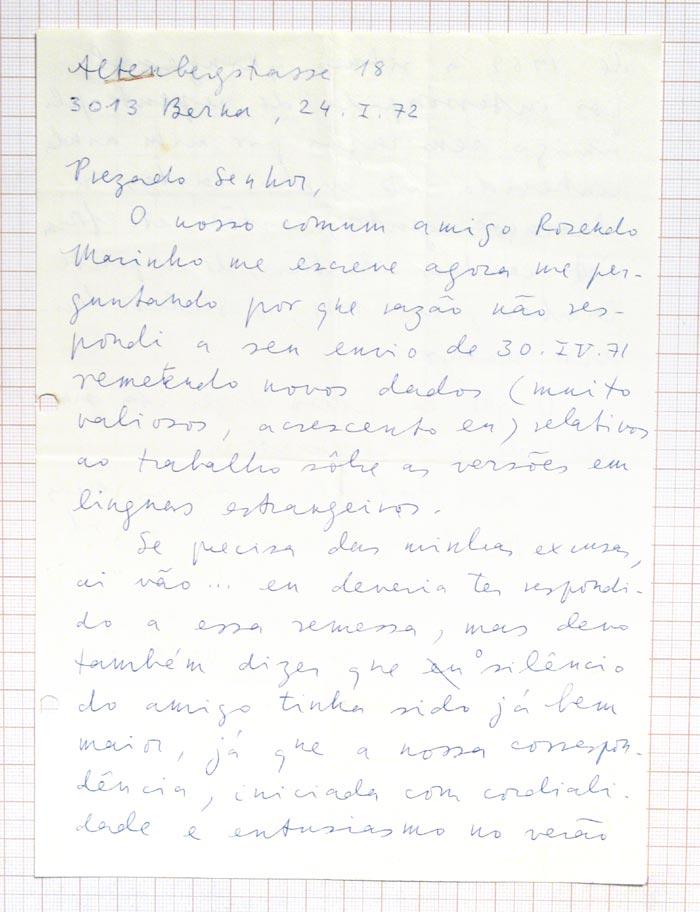 Altenbergstrasse 18
3013 Berna, 24.I.72
Prezado Senhor,
O nosso comum amigo Rozendo
Marinho me escreve agora me per-
guntando por que razão não res-
pondi a seu envio de 30.IV.71
remetendo novos dados (muito
valiosos, acrescento eu) relativos
ao trabalho sôbre as versões em
linguas estrangeiras.
Se precisa das minhas excusas,
ai vão... eu deveria ter respondi-
do a essa remessa, mas devo
também dizer que o silêncio
do amigo tinha sido já bem
maior, já que a nossa correspon-
dência, iniciada com cordiali-
dade e entusiasmo no verão